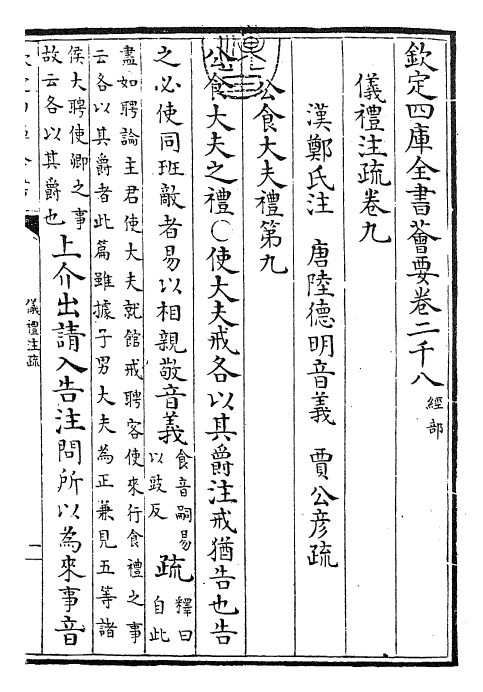 欽定四庫全書薈要卷二千八 經部
儀禮注疏卷九
漢鄭氏注 唐陸德明音義 賈公彦疏
公食大夫禮第九
公食大夫之禮○使大夫戒各以其爵注戒猶告也告
之必使同班敵者易以相親敬音義食音嗣易以豉反疏釋曰自此
盡如聘論主君使大夫就館戒聘客使來行食禮之事
云各以其爵者此篇雖據子男大夫為正兼見五等諸
侯大聘使卿之事故云各以其爵也上介出請入告注問所以為來事音
儀禮注疏
一